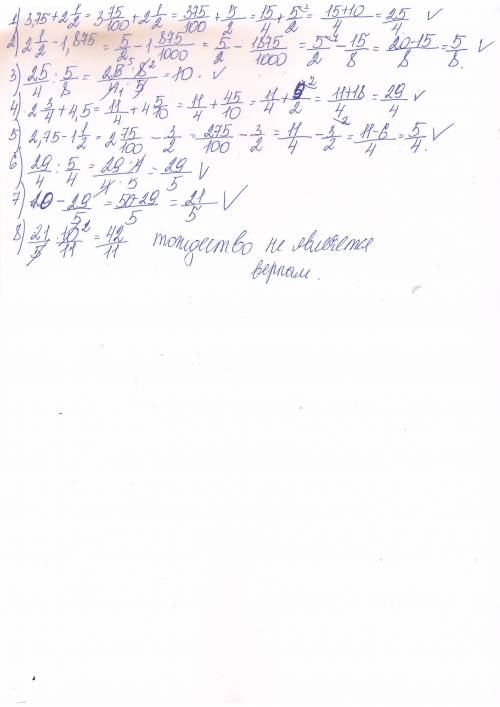 1) 3,75+2 1/2 = 3 75/100 + 2 1/2 = 375/100 + 5/2 = 15/4 + 5²/2 = 15+10/4 = 25/4 ✓
2) 2 1/2 - 1,875 = 5/2 - 1 875/1000 = 5/2 - 1875/1000 = 5⁴/2 - 15/8 = 20-15/8 = 5/8 ✓
3) 25/4 : 5/8 = 25⁵ · 8²/4₁ · 5 = 10. ✓
4) 2 3/4 + 4,5 = 11/4 + 4 5/10 = 11/4 + 45/10 = 11/4 + 9²/2 = 11+18/4 = 29/4 ✓
5) 2,75 - 1 1/2 = 2 75/100 - 3/2 = 275/100 - 3/2 = 11/4 - 3²/2 = 11-6/4 = 5/4. ✓
6) 29/4 : 5/4 = 29 · 4/4 · 5 = 29/5 ✓
7) 10 - 29/5 = 50-29/5 = 21/5 ✓
8) 21/5 · 10²/11 = 42/11 тождество не является
верным.